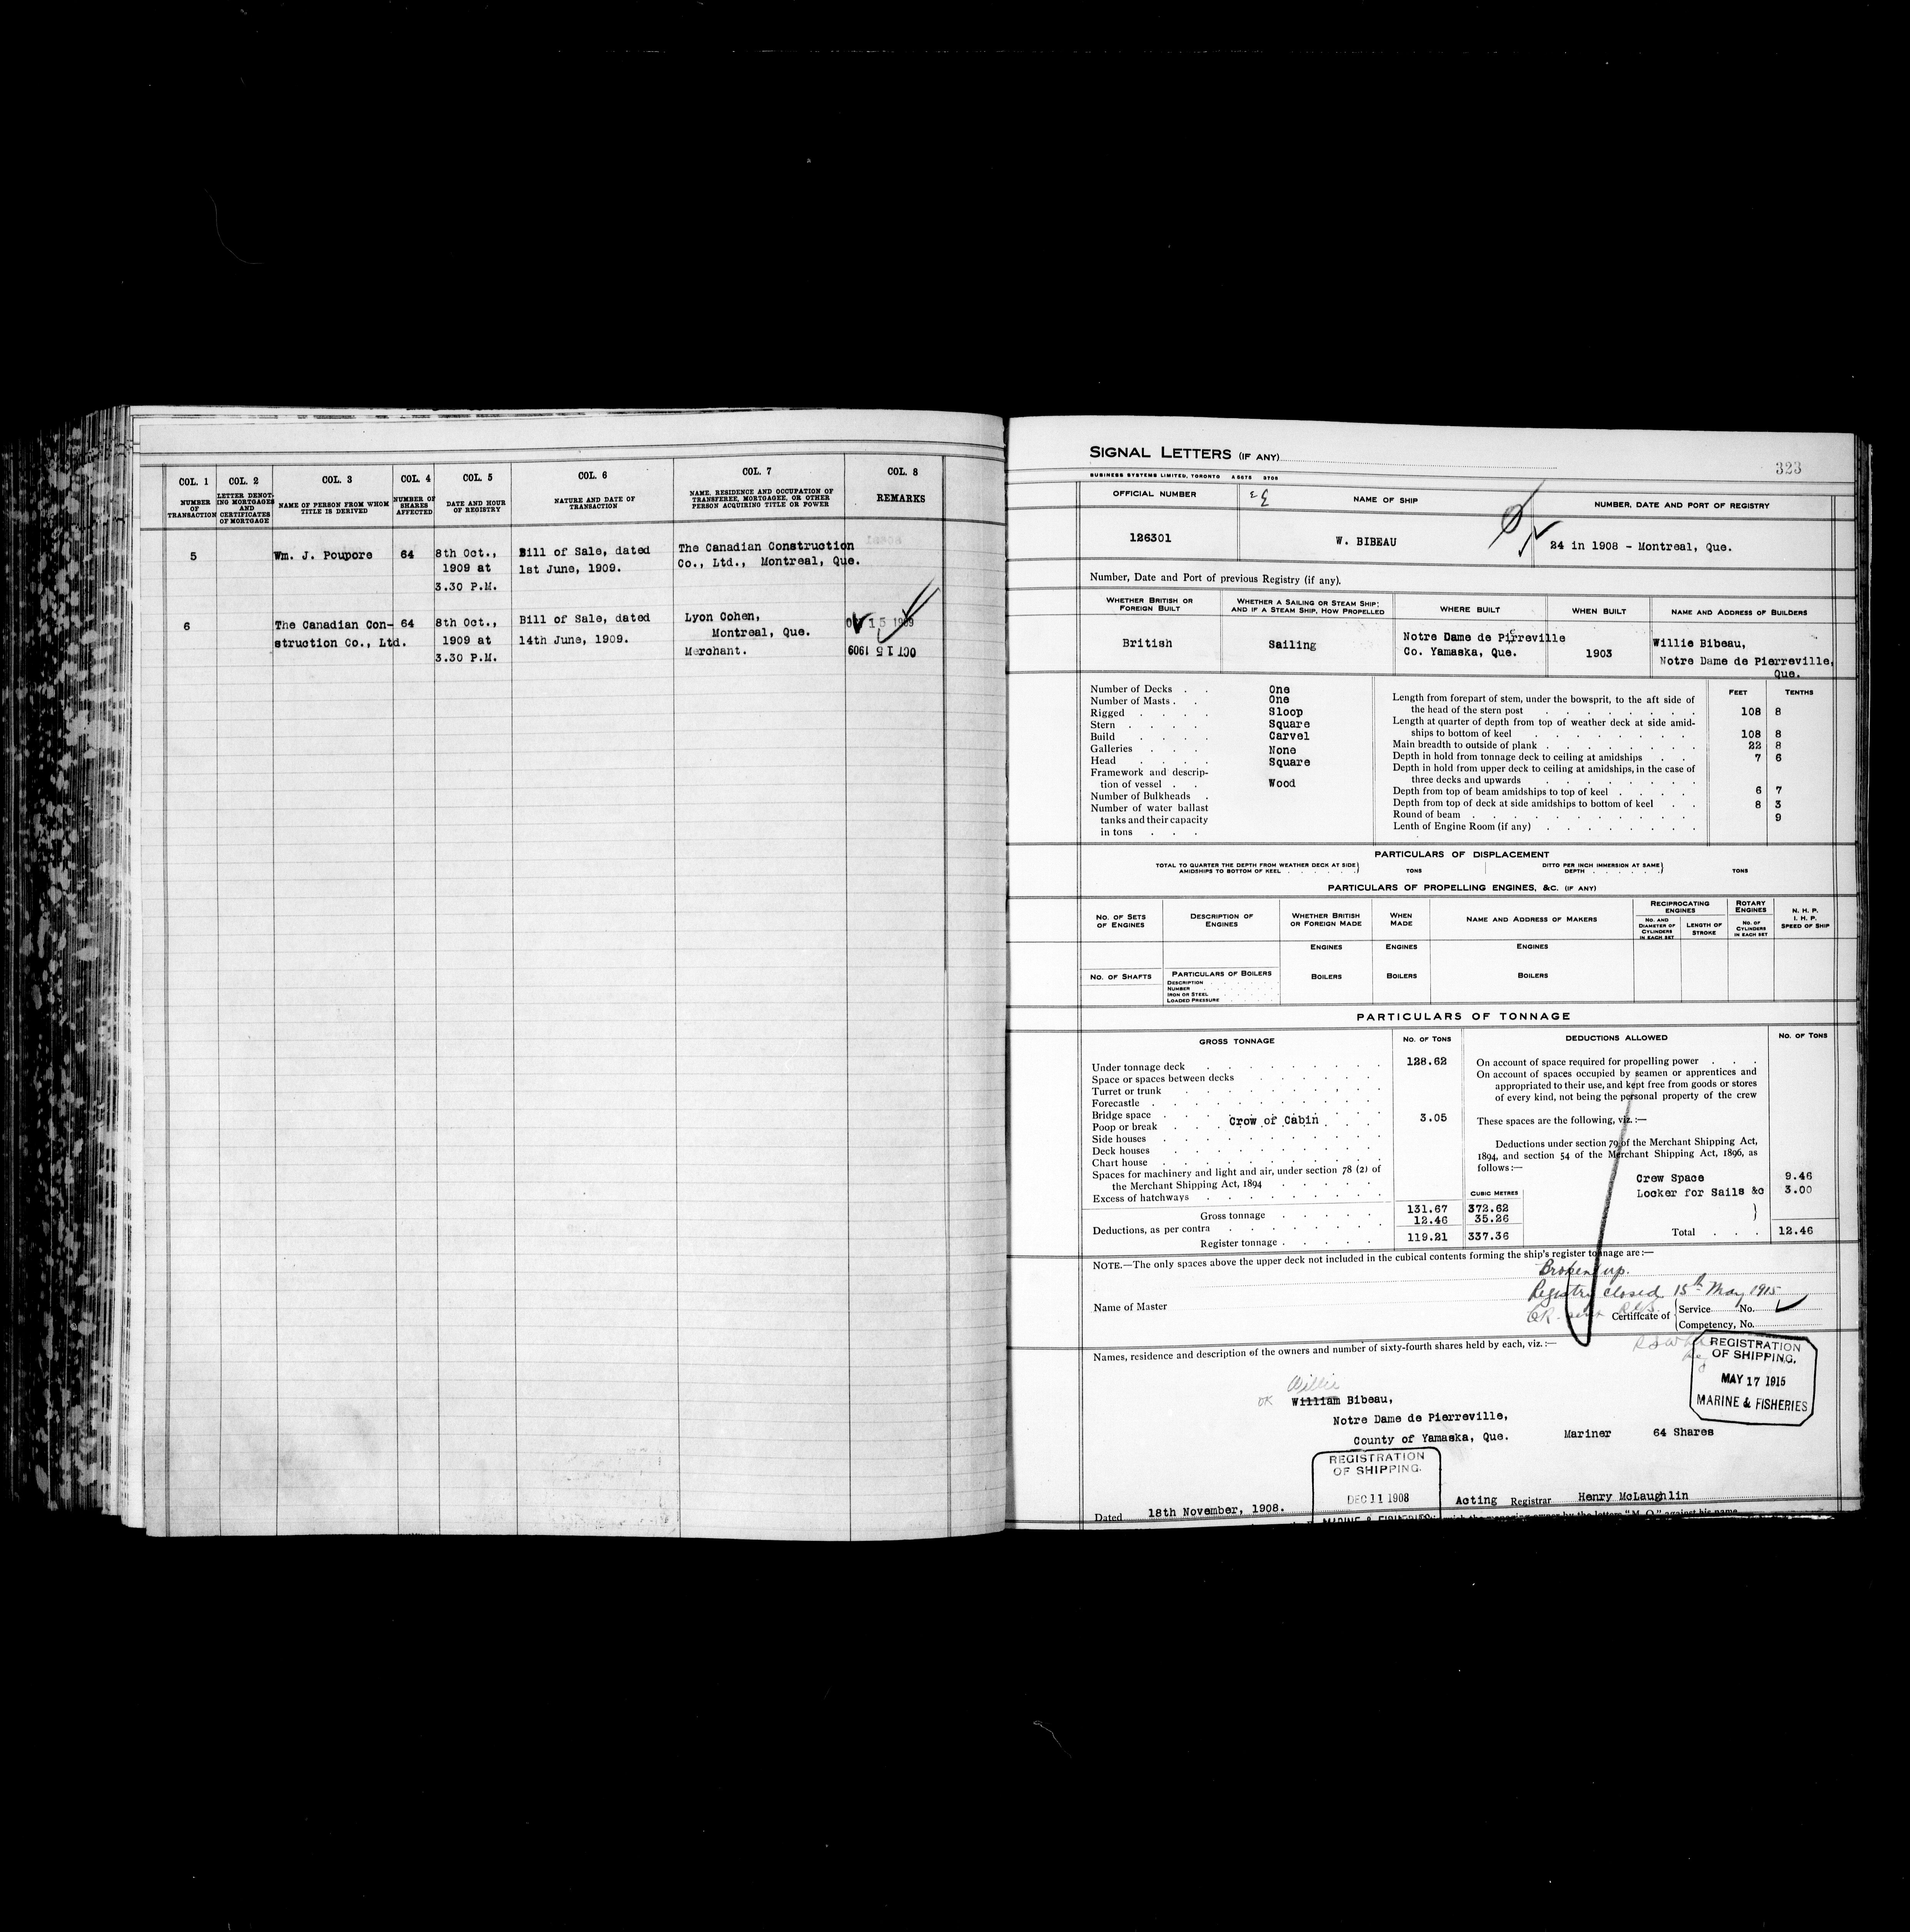 COL. 1
COL. 2
COL. 3
COL. 4
COL. 5
COL. 6
COL. 7
COL. 8
NUMBER OF TRANSACTION
LETTER DENOTING MORTGAGES AND CERTIFICATES OF MORTGAGE
NAME OF PERSON FROM WHOM TITLE IS DERIVED
NUMBER OF SHARES AFFECTED
DATE AND HOUR OF REGISTRY
NATURE AND DATE OF TRANSACTION
NAME, RESIDENCE AND OCCUPATION OF TRANSFEREE, MORTGAGEE, OR OTHER PERSON ACQUIRING TITLE OR POWER
REMARKS
5 Wm. J. Poupore 64 8th Oct., Bill of Sale, dated The Canadian Construction
1909 at 1st June, 1909. Co., Ltd., Montreal, Que.
3.30 P.M.
6 The Canadian Con- 64 8th Oct., Bill of Sale, dated Lyon Cohen,
struction Co., Ltd. 1909 at 14th June, 1909. Montreal, Que.
3.30 P.M. Merchant.
OCT 15 1909
OCT 15 1909
SIGNAL LETTERS (IF ANY)
323
BUSINESS SYSTEMS LIMITED, TORONTO
OFFICIAL NUMBER
NAME OF SHIP
NUMBER, DATE AND PORT OF REGISTRY
126301
W. BIBEAU
24 in 1908 - Montreal, Que.
Number, Date and Port of previous Registry (if any).
WHETHER BRITISH OR FOREIGN BUILT
WHETHER A SAILING OR STEAM SHIP; AND IF A STEAM SHIP, HOW PROPELLED
WHERE BUILT
WHEN BUILT
NAME AND ADDRESS OF BUILDERS
British
Sailing
Notre Dame de Pirreville
Co. Yamaska, Que.
1903
Willie Bibeau,
Notre Dame de Pierreville,
Que.
Number of Decks One
Number of Masts One
Rigged Sloop
Stern Square
Build Carvel
Galleries None
Head Square
Framework and descrip-
tion of vessel Wood
Number of Bulkheads
Number of water ballast
tanks and their capacity
in tons
FEET TENTHS
Length from forepart of stem, under the bowsprit, to the aft side of
the head of the stern post 108 8
Length at quarter of depth from top of weather deck at side amid-
ships to bottom of keel 108 8
Main breadth to outside of plank 22 8
Depth in hold from tonnage deck to ceiling at amidships 7 6
Depth in hold from upper deck to ceiling at amidships, in the case of
three decks and upwards
Depth from top of beam amidships to top of keel 6 7
Depth from top of deck at side amidships to bottom of keel 8 3
Round of beam 9
Lenth of Engine Room (if any)
PARTICULARS OF DISPLACEMENT
TOTAL TO QUARTER THE DEPTH FROM WEATHER DECK AT SIDE
AMIDSHIPS TO BOTTOM OF KEEL TONS
DITTO PER INCH IMMERSION AT SAME
DEPTH TONS
PARTICULARS OF PROPELLING ENGINES, &C. (IF ANY)
NO. OF SETS OF ENGINES
DESCRIPTION OF ENGINES
WHETHER BRITISH OR FOREIGN MADE
WHEN MADE
NAME AND ADDRESS OF MAKERS
RECIPROCATING ENGINES
NO. AND DIAMETER OF CYLINDERS IN EACH SET
LENGTH OF STROKE
ROTARY ENGINES
NO. OF CYLINDERS IN EACH SET
N. H. P.
I. H. P.
SPEED OF SHIP
ENGINES ENGINES ENGINES
NO. OF SHAFTS
PARTICULARS OF BOILERS
DESCRIPTION
NUMBER
IRON OR STEEL
LOADED PRESSURE
BOILERS BOILERS BOILERS
PARTICULARS OF TONNAGE
GROSS TONNAGE
NO. OF TONS
DEDUCTIONS ALLOWED
NO. OF TONS
Under tonnage deck 128.62
Space or spaces between decks
Turret or trunk
Forecastle
Bridge space
Poop or break Crow of Cabin 3.05
Side houses
Deck houses
Chart house
Spaces for machinery and light and air, under section 78 (2) of
the Merchant Shipping Act, 1894
Excess of hatchways
CUBIC METRES
Gross tonnage 131.67 372.62
Deductions, as per contra 12.46 35.26
Register tonnage 119.21 337.36
On account of space required for propelling power
On account of spaces occupied by seamen or apprentices and
appropriated to their use, and kept free from goods or stores
of every kind, not being the personal property of the crew
These spaces are the following, viz.:—
Deductions under section 79 of the Merchant Shipping Act,
1894, and section 54 of the Merchant Shipping Act, 1896, as
follows:—
Crew Space 9.46
Locker for Sails &c 3.00
Total 12.46
NOTE.—The only spaces above the upper deck not included in the cubical contents forming the ship's register tonnage are:—
Broken up.
Registry closed 15th May 1915
Name of Master
Certificate of
Service No.
Competency, No.
Names, residence and description of the owners and number of sixty-fourth shares held by each, viz.:—
REGISTRATION
OF SHIPPING.
MAY 17 1915
MARINE & FISHERIES
Willie
OK William Bibeau,
Notre Dame de Pierreville,
County of Yamaska, Que. Mariner 64 Shares
REGISTRATION
OF SHIPPING.
DEC 11 1908
MARINE & FISHERIES
Dated 18th November, 1908. Acting Registrar Henry McLaughlin